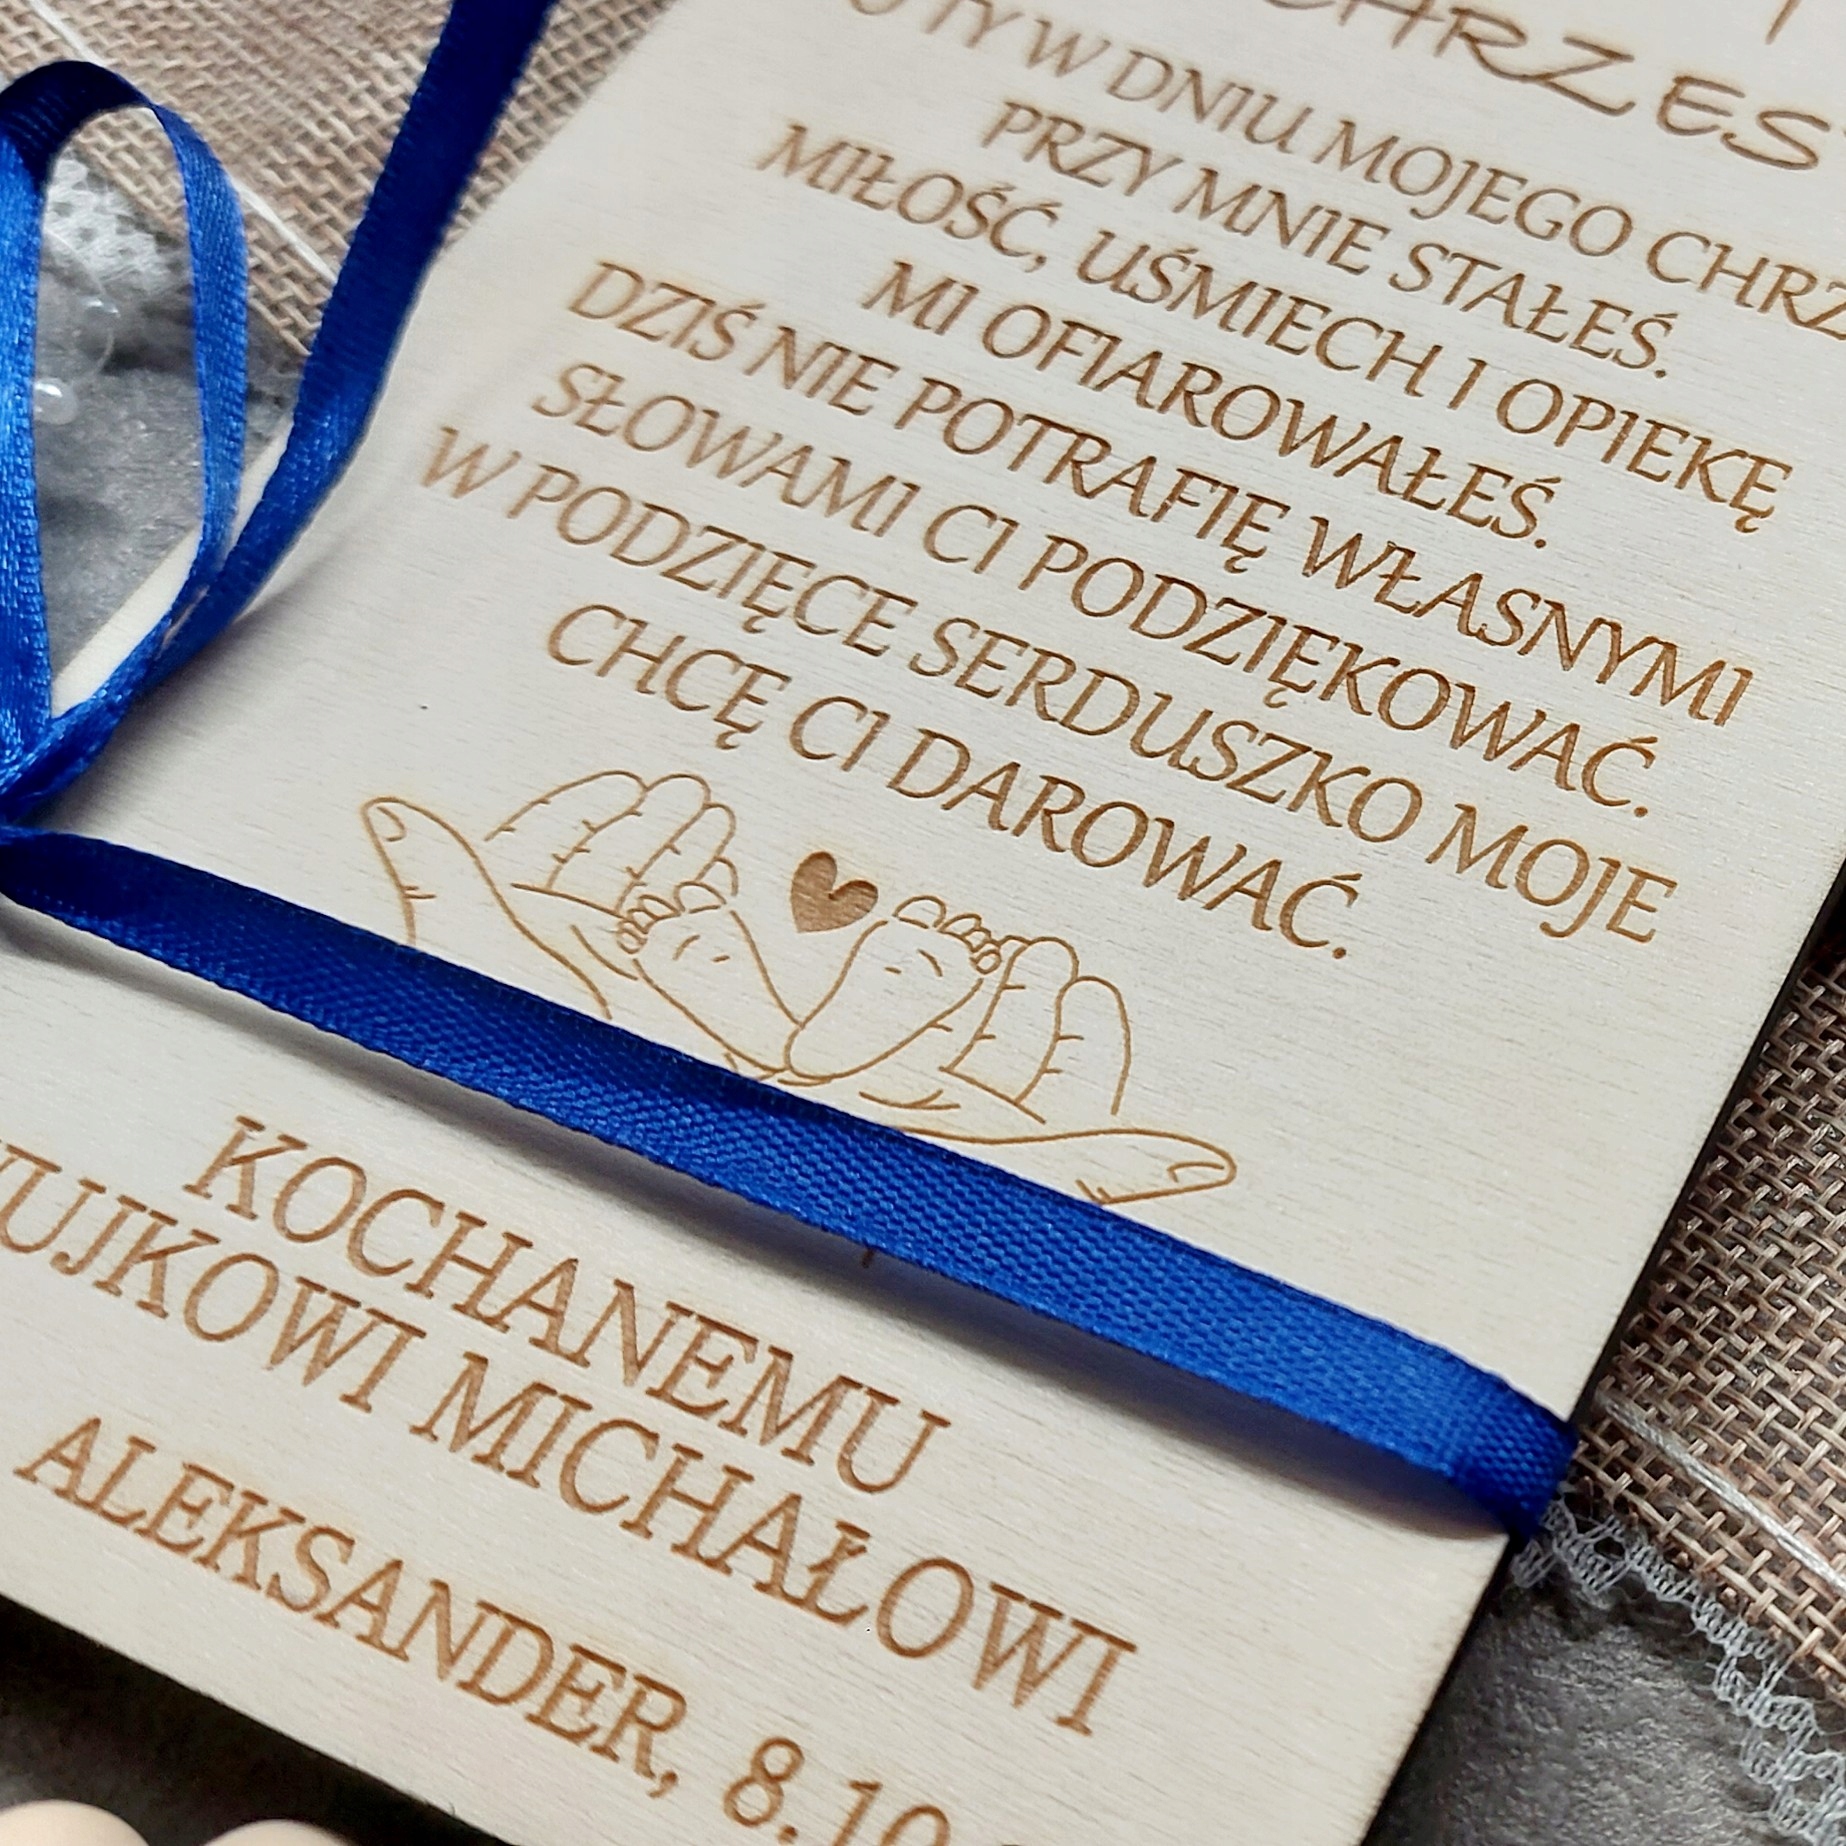 CHRZES
TY W DNIU MOJEGO CHRZ
PRZY MNIE STAŁEŚ.
MIŁOŚĆ, UŚMIECH I OPIEKĘ
MI OFIAROWAŁEŚ.
DZIŚ NIE POTRAFIĘ WŁASNYMI
SŁOWAMI CI PODZIĘKOWAĆ.
W PODZIĘCE SERDUSZKO MOJE
CHCĘ CI DAROWAĆ.
KOCHANEMU
WUJKOWI MICHAŁOWI
ALEKSANDER, 8.10